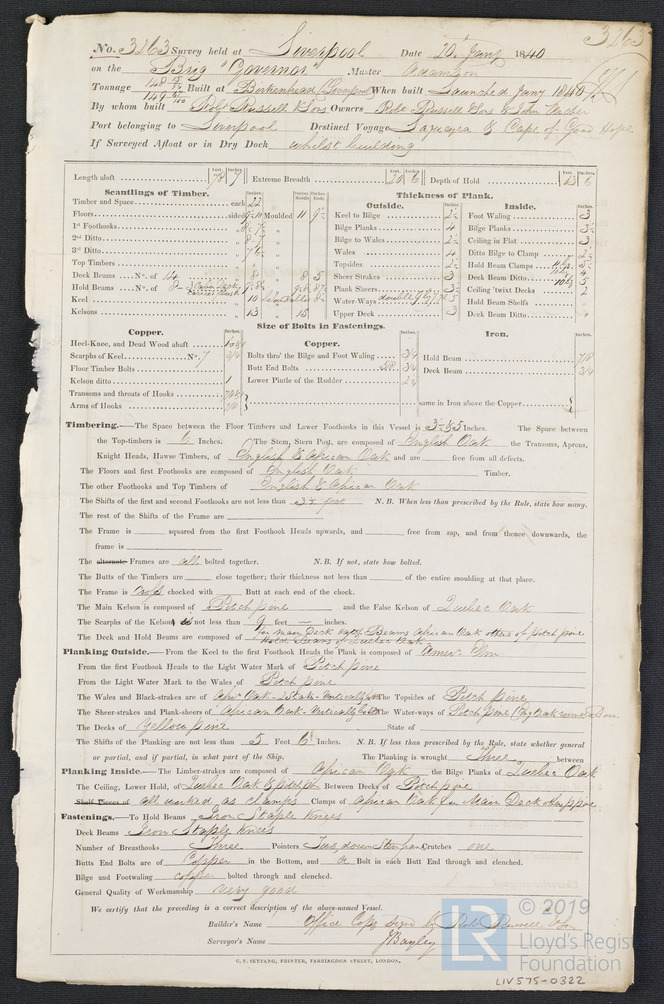 3263
No. 3263 Survey held at Liverpool Date 20th Jany 1840
on the Brig "Governor" Master
Tonnage 148 Built at Birkenhead (Liverpool) When built Launched Jany 1840
149
By whom built Robt Russell & Sons Owners Robt Russell Sons & John
Port belonging to Liverpool Destined Voyage Laguayra & Cape of Good Hope
If Surveyed Afloat or in Dry Dock whilst building
Length aloft 78 7 Extreme Breadth 20 6 Depth of Hold 13 6
Scantlings of Timber.
Thickness of Plank.
Outside. Inside.
Timber and Space each 22
Floors sided Moulded 11
1st Foothooks
2nd Ditto
3rd Ditto
Top Timbers
Deck Beams No. of 14
Hold Beams No. of 8
Keel 10
Kelsons 13 15
Keel to Bilge
Bilge Planks 4
Bilge to Wales
Wales 4
Topsides
Sheer Strakes
Plank Sheers
Water-Ways
Upper Deck
Foot Waling
Bilge Planks
Ceiling in Flat
Ditto Bilge to Clamp
Hold Beam Clamps
Deck Beam Ditto
Ceiling 'twixt Decks
Hold Beam Shelfs
Deck Beam Ditto
Size of Bolts in Fastenings.
Copper. Copper. Iron.
Heel-Knee, and Dead Wood abaft
Scarphs of Keel No. 7 3/4
Floor Timber Bolts
Kelson ditto 1
Transoms and throats of Hooks
Arms of Hooks
Bolts thro' the Bilge and Foot Waling 3/4
Butt End Bolts 3/4
Lower Pintle of the Rudder
Hold Beam 7/8
Deck Beam 3/4
same in Iron above the Copper
Timbering.—The Space between the Floor Timbers and Lower Foothooks in this Vessel is Inches. The Space between
the Top-timbers is 6 Inches. The Stem, Stern Post, are composed of English Oak the Transoms, Aprons,
Knight Heads, Hawse Timbers, of English & African Oak and are free from all defects.
The Floors and first Foothooks are composed of English Oak Timber.
The other Foothooks and Top Timbers of English & African Oak
The Shifts of the first and second Foothooks are not less than feet N.B. When less than prescribed by the Rule, state how many.
The rest of the Shifts of the Frame are
The Frame is squared from the first Foothook Heads upwards, and free from sap, and from thence downwards, the
frame is
The alternate Frames are all bolted together. N.B. If not, state how bolted.
The Butts of the Timbers are close together; their thickness not less than of the entire moulding at that place.
The Frame is cross chocked with Butt at each end of the chock.
The Main Kelson is composed of Pitch pine and the False Kelson of Quebec Oak
The Scarphs of the Kelsons is not less than 9 feet — inches.
The Deck and Hold Beams are composed of for main Deck hatch Beams African Oak others of pitch pine
Hold Beams of Quebec Oak
Planking Outside.—From the Keel to the first Foothook Heads the Plank is composed of Amer. Elm
From the first Foothook Heads to the Light Water Mark of Pitch pine
From the Light Water Mark to the Wales of Pitch pine
The Wales and Black-strakes are of The Topsides of Pitch Pine
The Sheer-strakes and Plank-sheers of African Oak The Water-ways of Pitch pine
The Decks of Yellow pine State of
The Shifts of the Planking are not less than 5 Feet 6 Inches. N.B. If less than prescribed by the Rule, state whether general
or partial, and if partial, in what part of the Ship. The Planking is wrought Three between
Planking Inside.—The Limber-strakes are composed of African Oak the Bilge Planks of Quebec Oak
The Ceiling, Lower Hold, of Quebec Oak & pitch p. Between Decks of Pitch pine
Shelf Pieces of all worked as clamps Clamps of African Oak for Main Deck
Fastenings.—To Hold Beams Iron Staple Knees
Deck Beams Iron Staple Knees
Number of Breasthooks Three Pointers Crutches one
Butts End Bolts are of Copper in the Bottom, and a Bolt in each Butt End through and clenched.
Bilge and Footwaling copper bolted through and clenched.
General Quality of Workmanship very good
We certify that the preceding is a correct description of the above-named Vessel.
Builder's Name Office Copy signed by Robt Russell & Son
Surveyor's Name J Bayley
C. F. SEYFANG, PRINTER, FARRINGDON STREET, LONDON.
LR
© 2019
Lloyd's Register
Foundation
LIV575-0322